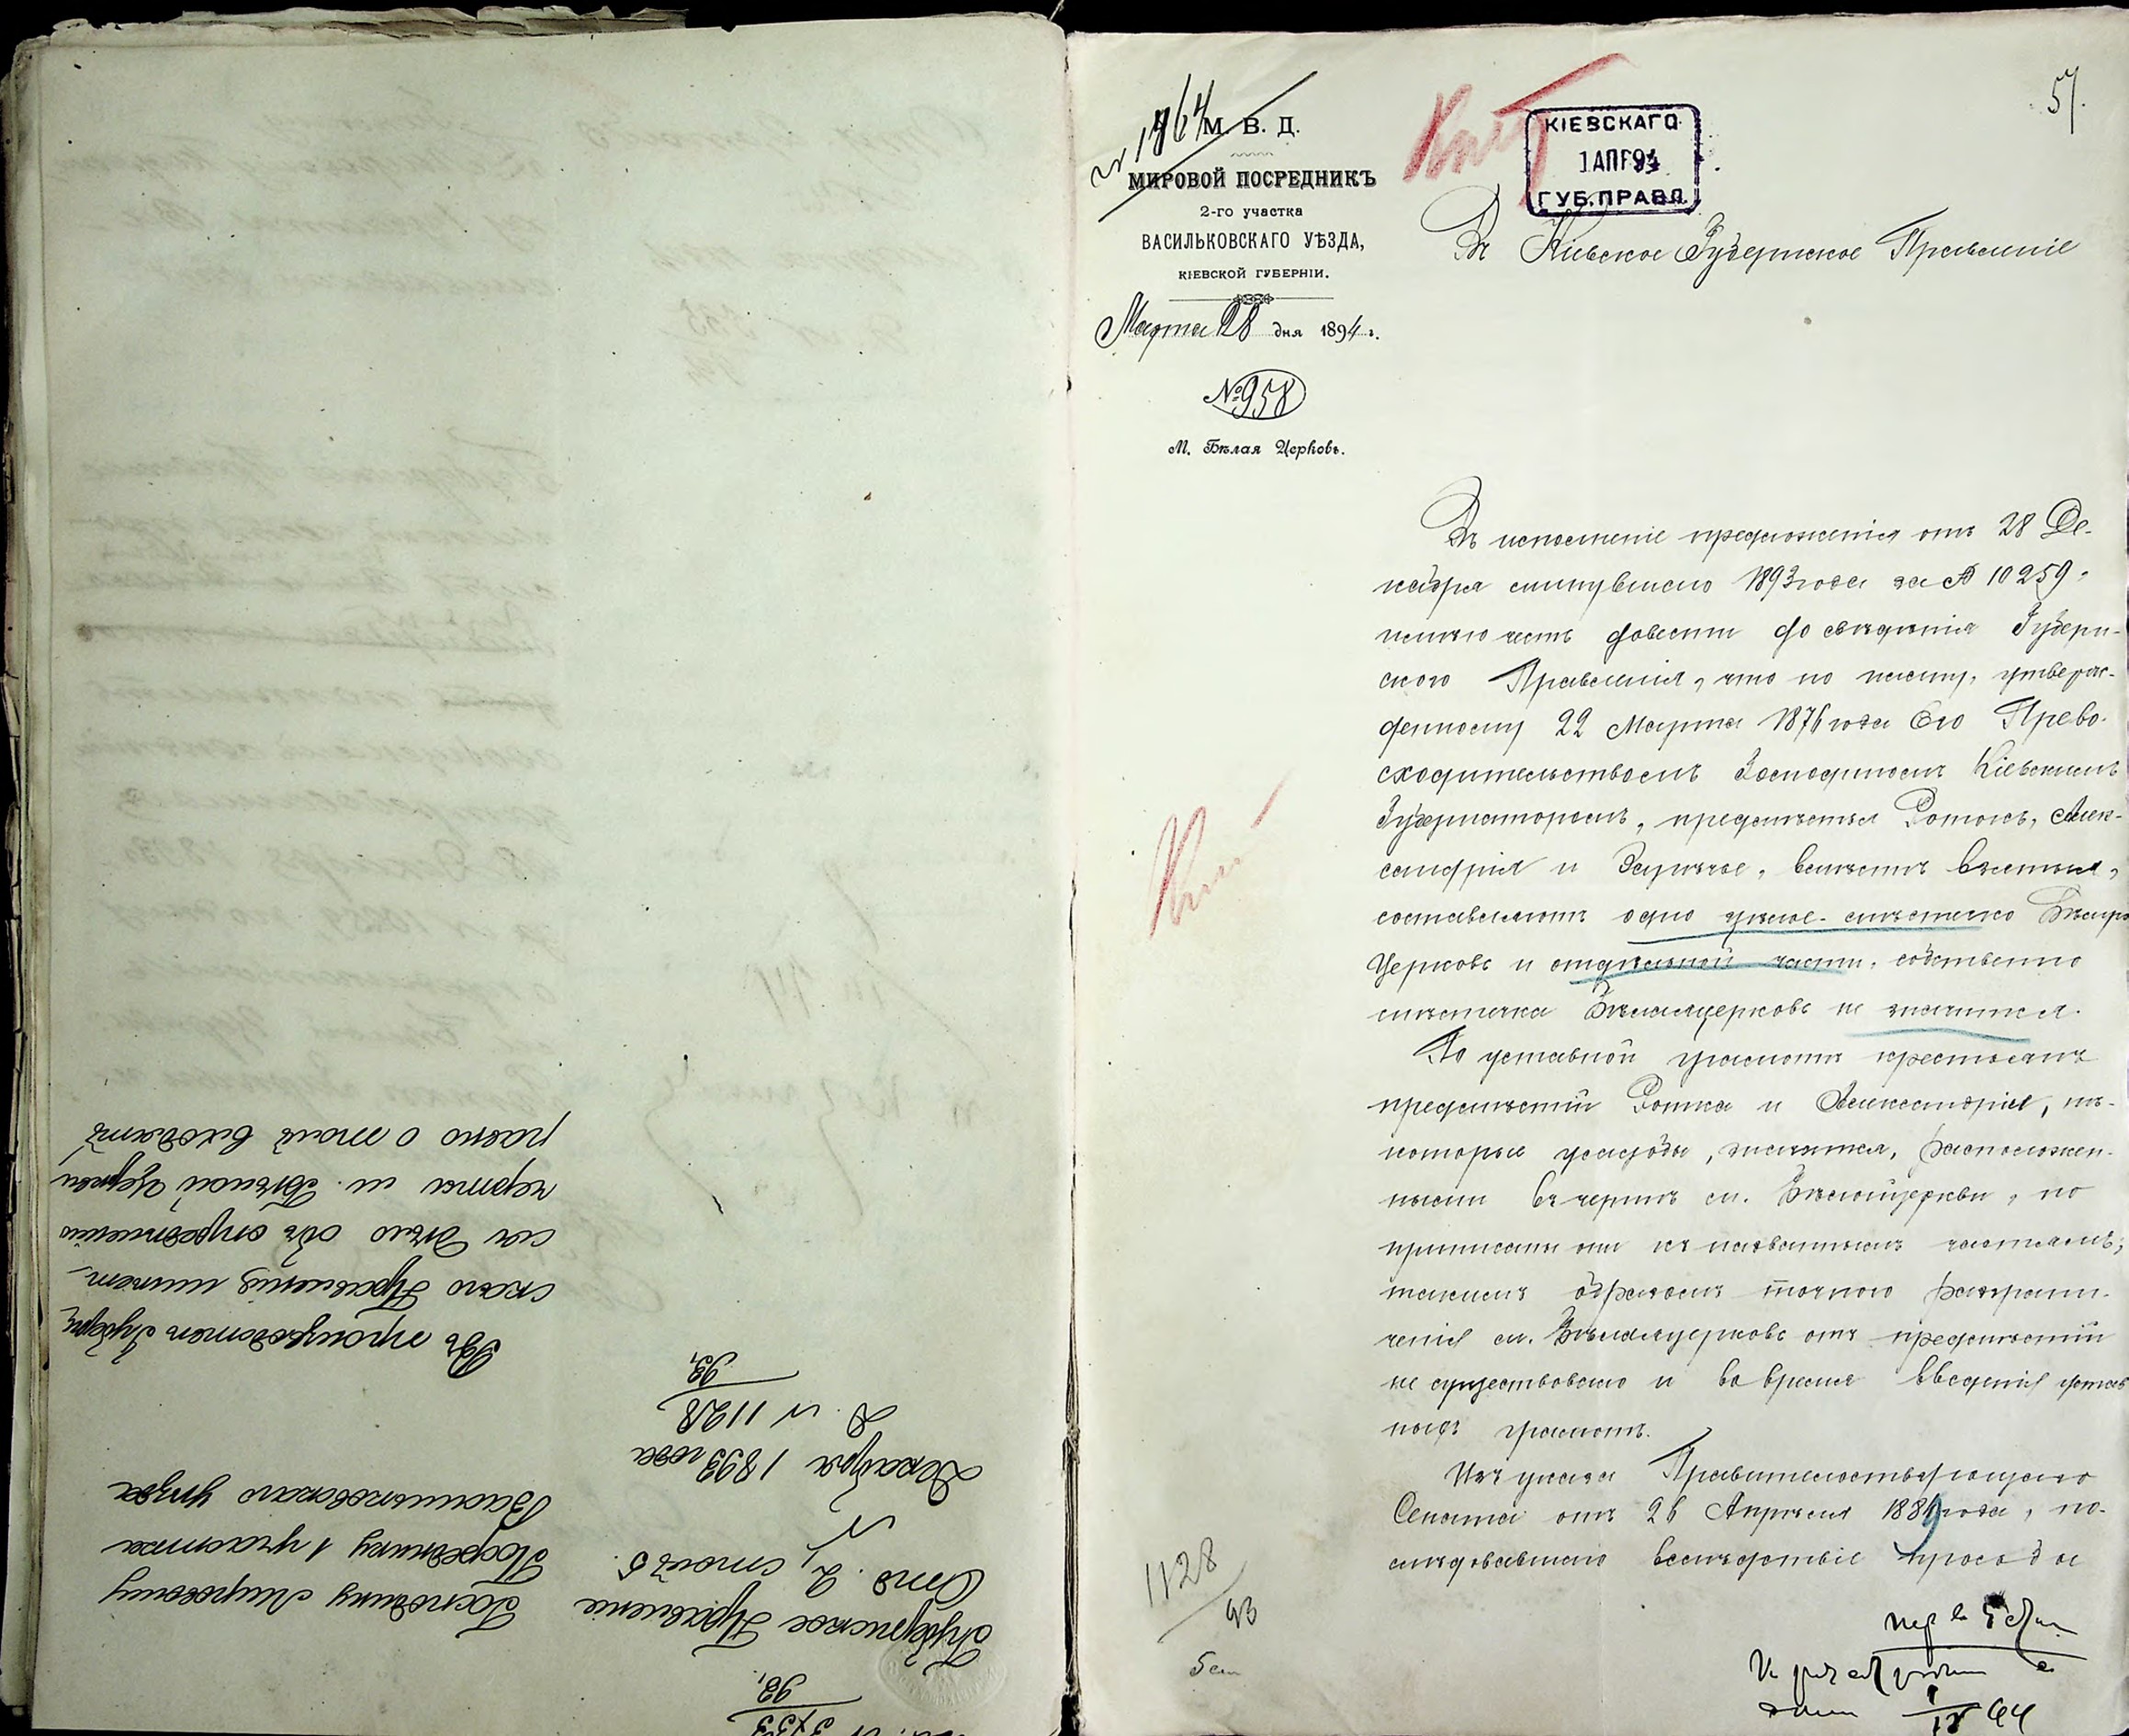 57.
№ 1964
М. В. Д.
МИРОВОЙ ПОСРЕДНИКЪ
2-го участка
ВАСИЛЬКОВСКАГО УѢЗДА,
КІЕВСКОЙ ГУБЕРНІИ.
Марта 28 дня 1894 г.
№ 958
М. Бѣлая Церковь.
КІЕВСКАГО
1 АПР 94
ГУБ. ПРАВЛ.
Въ Кіевское Губернское Правленіе
Въ исполненіе предложенія отъ 28 Де-
кабря минувшаго 1893 года за № 10259,
имѣю честь довести до свѣдѣнія Губерн-
скаго Правленія, что по плану, утверж-
денному 22 Марта 1876 года Его Прево-
сходительствомъ Господиномъ Кіевскимъ
Губернаторомъ, предмѣстья Ротокъ, Алек-
сандрія и Зарѣчье, вмѣстѣ взятыя,
составляютъ одно цѣлое - мѣстечко Бѣлую
Церковь и отдѣльной части, собственно
мѣстечка Бѣлаяцерковь не значится.
По уставной грамотѣ крестьянъ
предмѣстій Ротка и Александріи, нѣ-
которыя усадьбы, значатся, расположен-
ными въ чертѣ м. Бѣлойцеркви, но
приписаны они къ названнымъ частямъ;
такимъ образомъ точнаго разграни-
ченія м. Бѣлаяцерковь отъ предмѣстій
не существовало и во время введенія устав
ныхъ грамотъ.
Изъ указа Правительствующаго
Сената отъ 26 Апрѣля 1889 года, по-
слѣдовавшаго вслѣдствіе
1128
93
5 ст
Губернское Правленіе
Отд. 2, столъ 5
Декабря 1893 года
№ 1128
93
Господину Мировому
Посреднику 1 участка
Васильковскаго уѣзда
Въ производствѣ Губерн
скаго Правленія имѣет-
ся дѣло объ опредѣленіи
черты м. Бѣлой Церкви